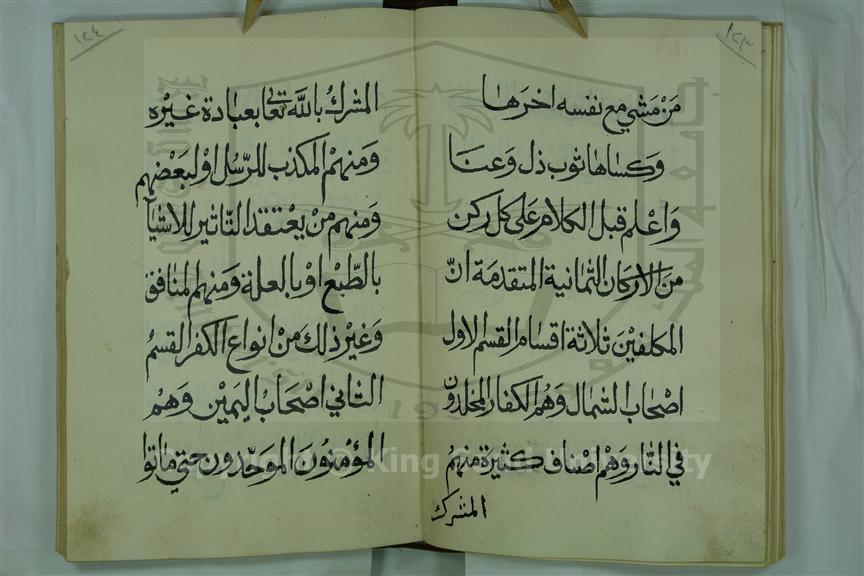 ١٢٣
مَنْ مَشي مع نفسه اخرَها
وَكسَاهَا ثوب ذل وَعنَا
وَاعْلم قبل الكلام عَلى كل ركن
مِنَ الاركان الثمانية المتقدمَة انّ
المكلفيْنَ ثلاثة اقسام القسم الاول
اصحَاب الشمال وَهُم الكفار المخلدون
في النار وَهُم اصْناف كثيرَة منهُمْ
المشرك
١٢٤
المشركُ بالله تعَالى بعبَادة غيْره
وَمنهمُ المكذب للرّسُل اوْ لبَعْضهم
وَمنهم مَنْ يعْتقد التّاثير للاشيآ
بالطّبْع اوْ بالعلة وَمنهم المنافق
وَغيْر ذلكَ منْ انواع الكفر القسمُ
الثاني اصْحَابُ اليَميْن وَهُمُ
المؤمنُونَ الموَحّدون حتي مَاتوا
Copyright © King Saud University